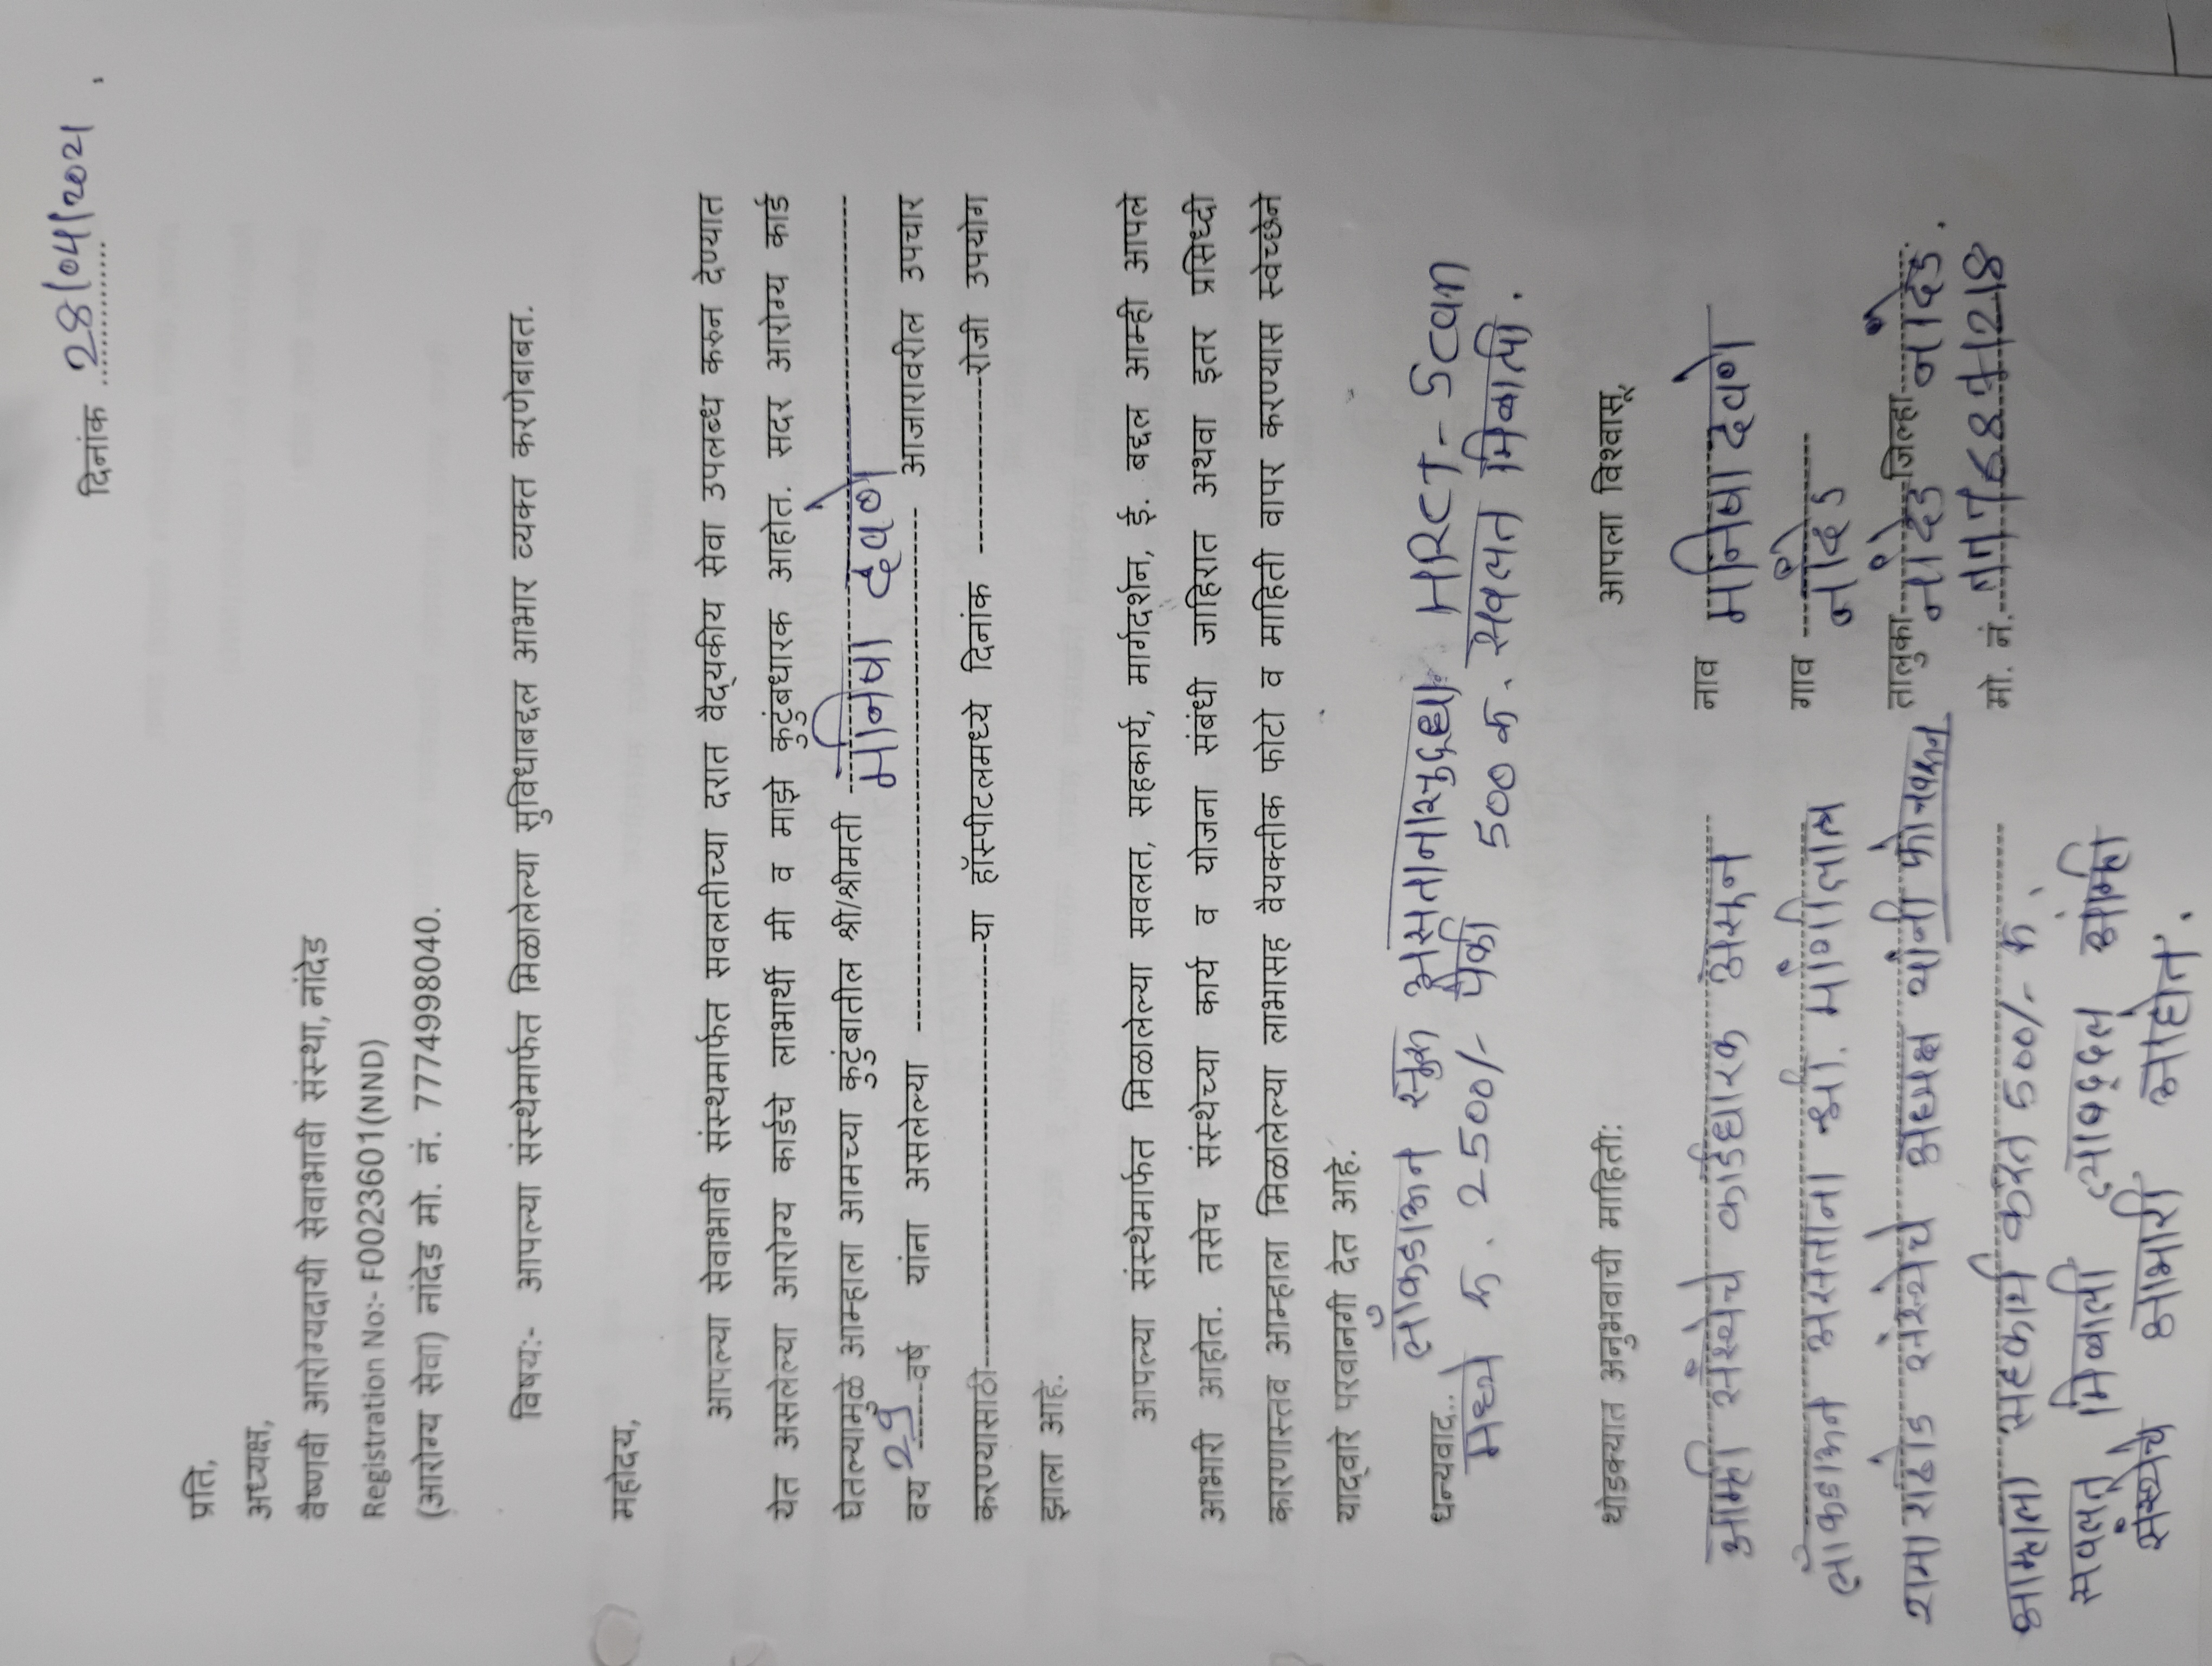 दिनांक 28/04/2021
प्रति,
अध्यक्ष,
वैष्णवी आरोग्यदायी सेवाभावी संस्था, नांदेड
Registration No:- F0023601(NND)
(आरोग्य सेवा) नांदेड मो. नं. 7774998040.
विषय:- आपल्या संस्थेमार्फत मिळालेल्या सुविधाबद्दल आभार व्यक्त करणेबाबत.
महोदय,
आपल्या सेवाभावी संस्थमार्फत सवलतीच्या दरात वैद्यकीय सेवा उपलब्ध करुन देण्यात
येत असलेल्या आरोग्य कार्डचे लाभार्थी मी व माझे कुटुंबधारक आहोत. सदर आरोग्य कार्ड
घेतल्यामुळे आम्हाला आमच्या कुटुंबातील श्री/श्रीमती मनिषा दवणे
वय 29 वर्ष यांना असलेल्या ---------- आजारावरील उपचार
करण्यासाठी----------या हॉस्पीटलमध्ये दिनांक ----------रोजी उपयोग
झाला आहे.
आपल्या संस्थेमार्फत मिळालेल्या सवलत, सहकार्य, मार्गदर्शन, ई. बद्दल आम्ही आपले
आभारी आहोत. तसेच संस्थेच्या कार्य व योजना संबंधी जाहिरात अथवा इतर प्रसिध्दी
कारणास्तव आम्हाला मिळालेल्या लाभासह वैयक्तीक फोटो व माहिती वापर करण्यास स्वेच्छेने
याद्वारे परवानगी देत आहे.
लॉकडाऊन सुरू असतानासुद्धा HRCT - Scan
धन्यवाद...
मध्ये रु. 2500/- पैकी 500 रु. सवलत मिळाली.
थोडक्यात अनुभवाची माहिती:
आम्ही संस्थेचे कार्डधारक असून
लॉकडाऊन असताना श्री. मांगीलाल
राठोड संस्थेचे अध्यक्ष यांनी फोनवरून
आम्हाला सहकार्य करत 500/- रु.
सवलत मिळाली त्याबद्दल आम्ही
संस्थेचे आभारी आहोत.
आपला विश्वासू,
नाव मनिषा दवणे
गाव नांदेड
तालुका नांदेड जिल्हा नांदेड.
मो. नं.